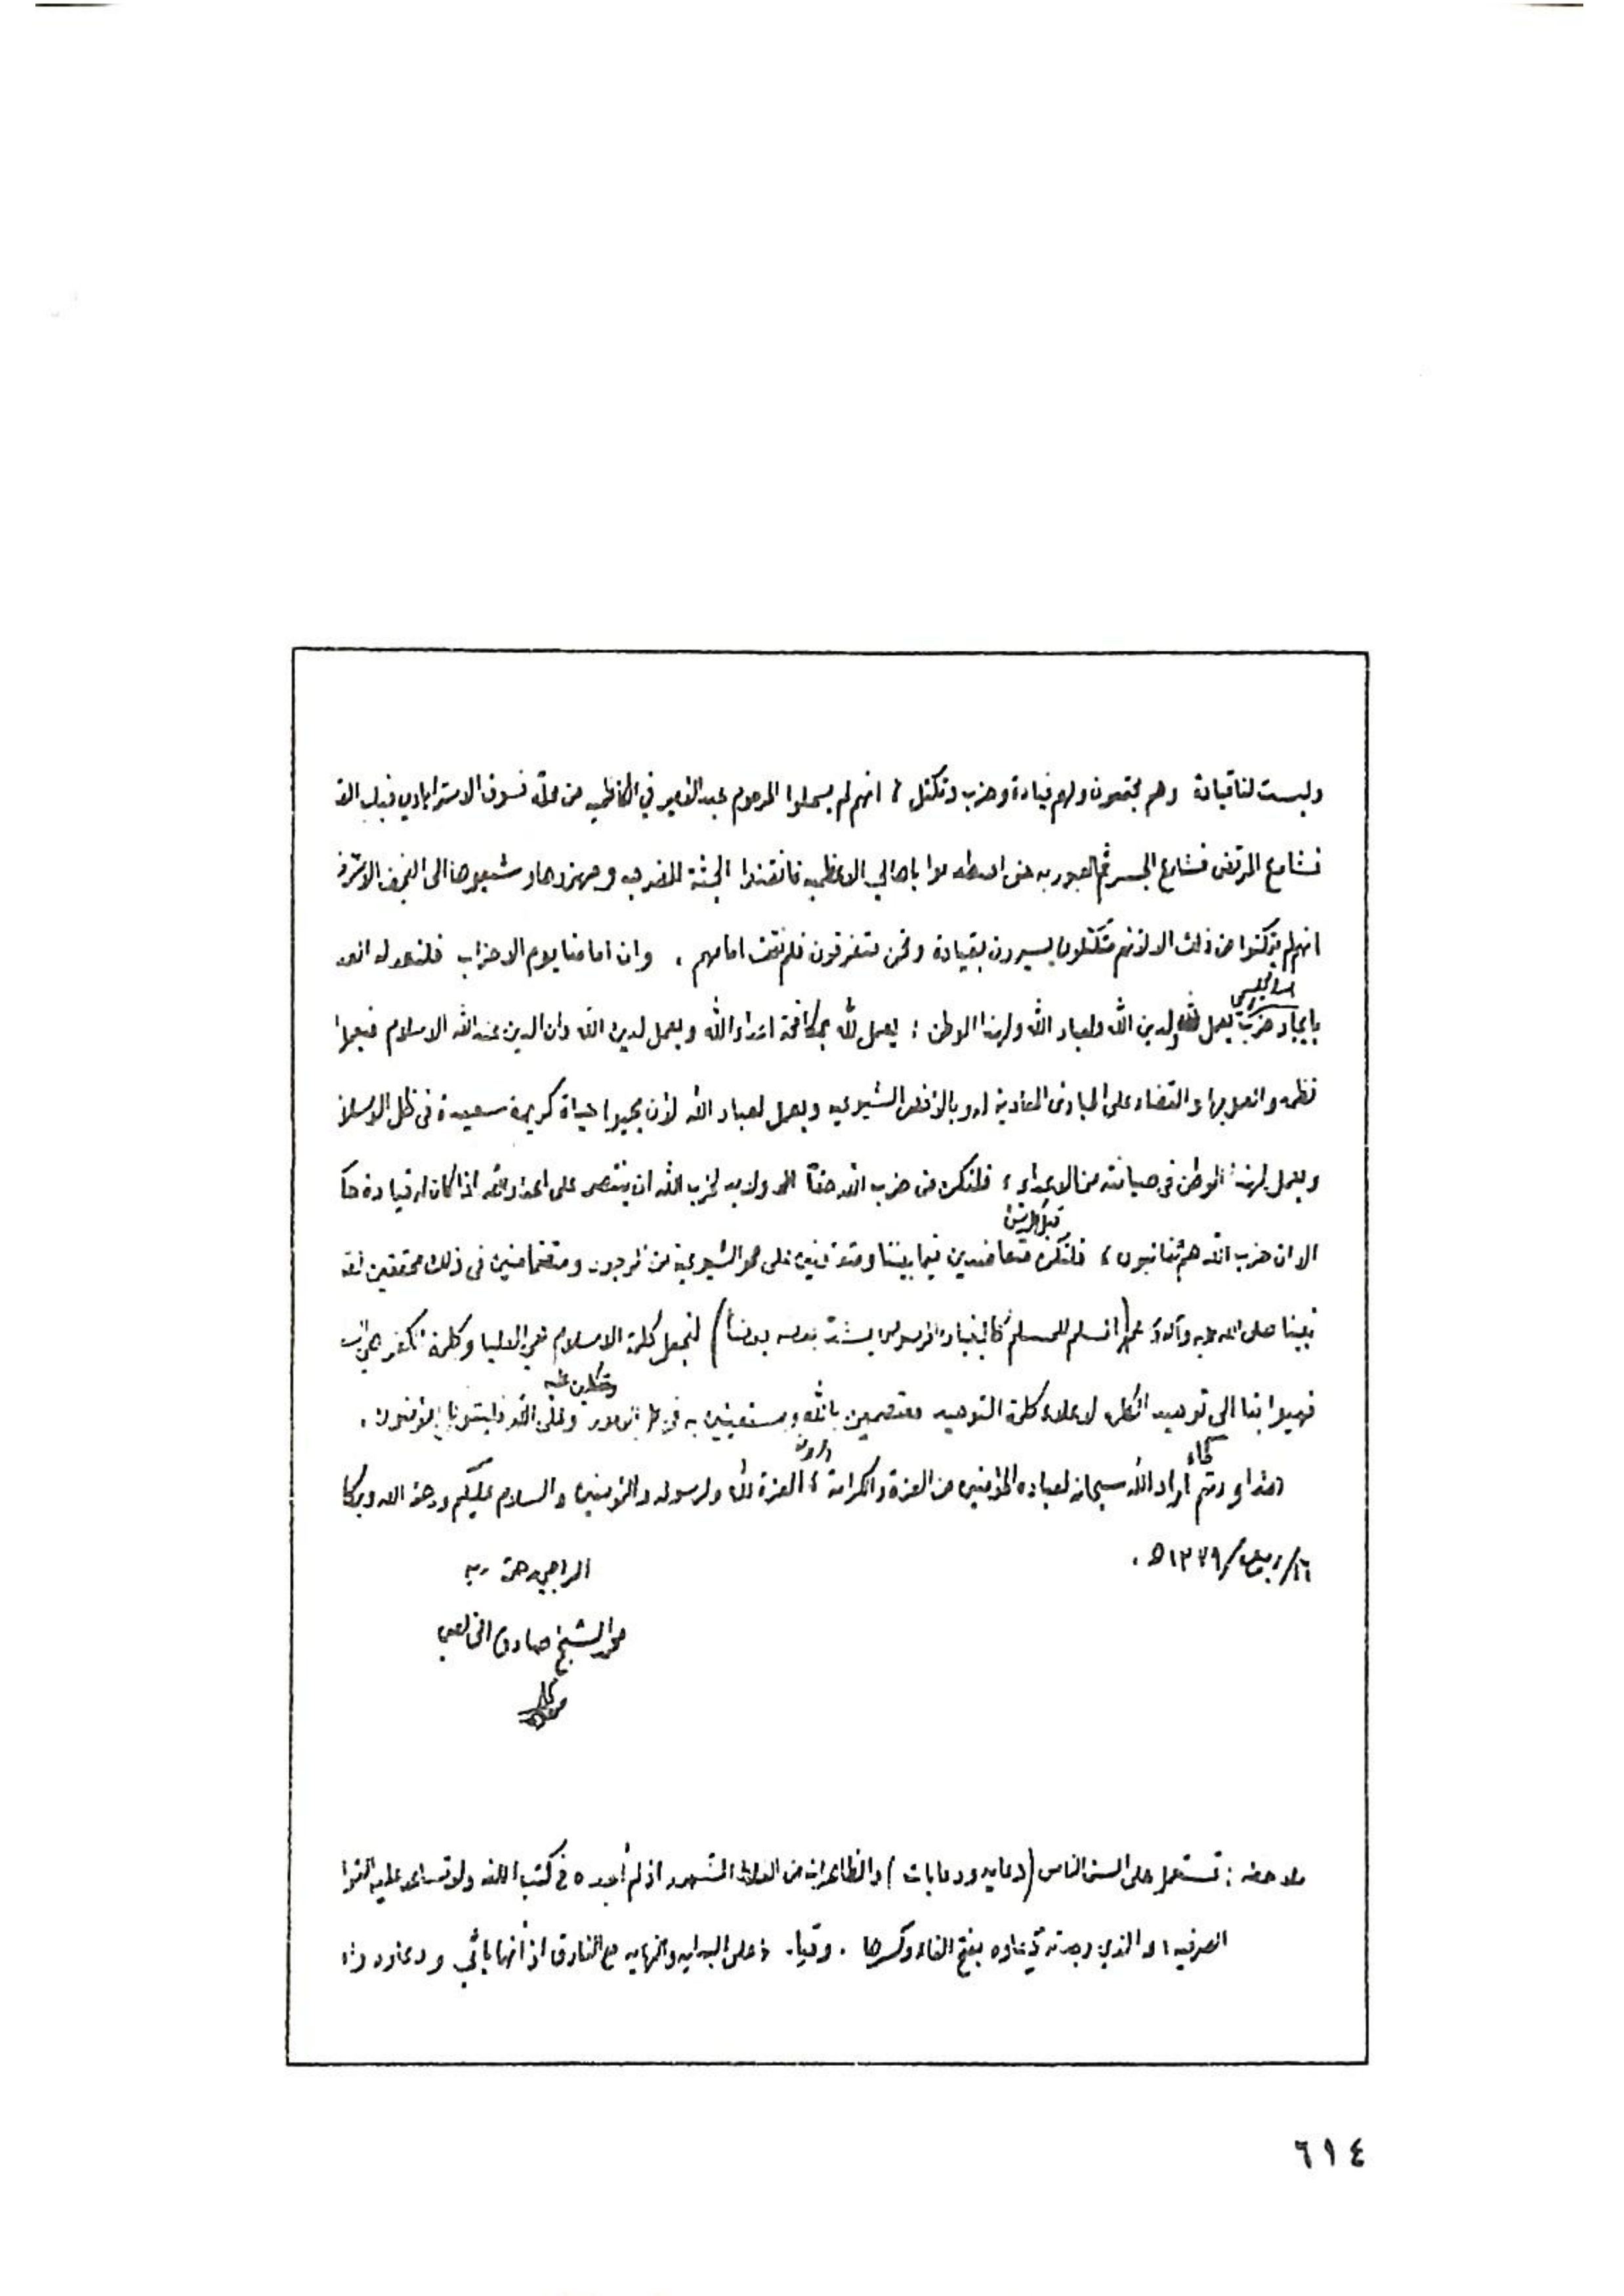 وليست لنا قيادة وهم مجتمعون ولهم قيادة وحزب وتكتل ؛ انهم لم يسحلوا المرحوم عبد الامير في الكاظميه من محلة فسوق الاسترابادي فباب
فشارع المرتضى فشارع الجسر ثم العبور به حتى اصطدموا باهالي الاعظميه فانقذوا الجثة وجهزوها وشيعوها الى النجف الاشرف
انهم لم يتمكنوا من ذلك الا لانهم متكتلون يسيرون بقيادة ونحن متفرقون فلم نقف امامهم . وان امامنا يوم الاحزاب فلنعد له العدد
بايجاد حزب يعمل لله ولدين الله ولعباد الله ولهذا الوطن : يعمل لله بمكافحة اعداء الله ويعمل لدين الله وان الدين عند الله الاسلام
نظمه والعمل بها والقضاء على المبادئ المعادية له وبالاخص الشيوعيه ويعمل لعباد الله لأن يحيوا حياة كريمة سعيدة في ظل الاسلام
ويعمل لهذا الوطن في صيانته من الاعداء ؛ فلنكن من حزب الله حقاً ولابد لحزب الله ان ينتصر على اعداء الله اذا كان له قيادة
الا ان حزب الله هم الغالبون ؛ فلنكن متعاضدين فيما بيننا ومتفقين على محو الشيوعية من الوجود ومتضامنين في ذلك محققين
نبينا صلى الله عليه وآله (المسلم للمسلم كالبنيان المرصوص يشد بعضه بعضا) لنجعل كلمة الاسلام هي العليا وكلمة الكفر هي
فهيوا بنا الى توحيد الكلمة لاعلاء كلمة التوحيد معتصمين بالله ومستعينين به في الامور وعلى الله فليتوكل المؤمنون .
ودمتم كما اراد الله سبحانه لعباده المؤمنين من العزة والكرامة ؛ العزة لله ولرسوله وللمؤمنين والسلام عليكم ورحمة الله وبركا
١٦/ربيع/١٣٧٩ھ .
الراجي رحمة ربه
محمد الشيخ صادق الخالصي
ملاحظه : تستعمل على السن الناس (دعايه ودعايات) والظاهر انه من الغلط المشهور اذ لم أجده في كتب اللغه ولا تساعد عليه
الصرفيه ؛ والذي وجدته دعاوه بفتح الفاء وكسرها . وقياسه على البدايه والنهايه مع الفارق اذ أنهما يائي ودعاوه
٦١٤